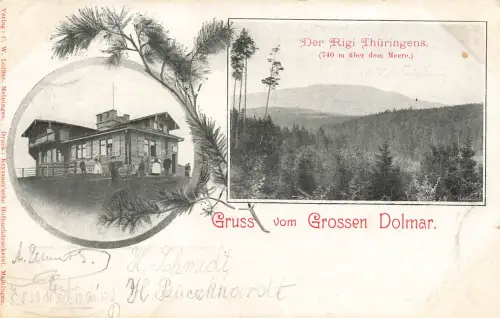 Der Rigi Thüringens.
(740 m über dem Meere.)
Gruss vom Grossen Dolmar.
Verlag: C. W. Löffler, Meiningen. Druck: Keyssner'sche Hofbuchdruckerei, Meiningen.
H. Schmidt
H Burckhardt